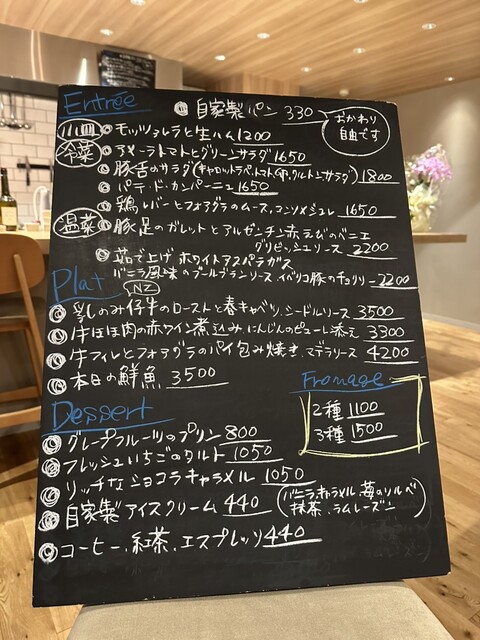 Entrée
◎ 自家製パン 330
おかわり
自由です
小皿 ◎ モッツァレラと生ハム 1200
冷菜 ◎ アメーラトマトとグリーンサラダ 1650
◎ 豚舌のサラダ(キャロットラペ、トマト、卵、クルトンサラダ) 1800
◎ パテ・ド・カンパーニュ 1650
◎ 鶏レバーとフォアグラのムース、コンソメジュレ 1650
温菜 ◎ 豚足のガレットとアルゼンチン赤えびのベニエ
グリビッシュソース 2200
◎ 茹で上げホワイトアスパラガス
バニラ風味のブールブランソース、イベリコ豚のチョリソー 2200
Plat
NZ
◎ 乳のみ仔牛のローストと春キャベツ、シードルソース 3500
◎ 牛ほほ肉の赤ワイン煮込み、にんじんのピューレ添え 3300
◎ 牛フィレとフォアグラのパイ包み焼き、マデラソース 4200
◎ 本日の鮮魚 3500
Fromage
2種 1100
3種 1500
Dessert
◎ グレープフルーツのプリン 800
◎ フレッシュいちごのタルト 1050
◎ リッチなショコラキャラメル 1050
◎ 自家製アイスクリーム 440 (バニラ、キャラメル、苺のソルベ
抹茶、ラムレーズン)
◎ コーヒー、紅茶、エスプレッソ 440